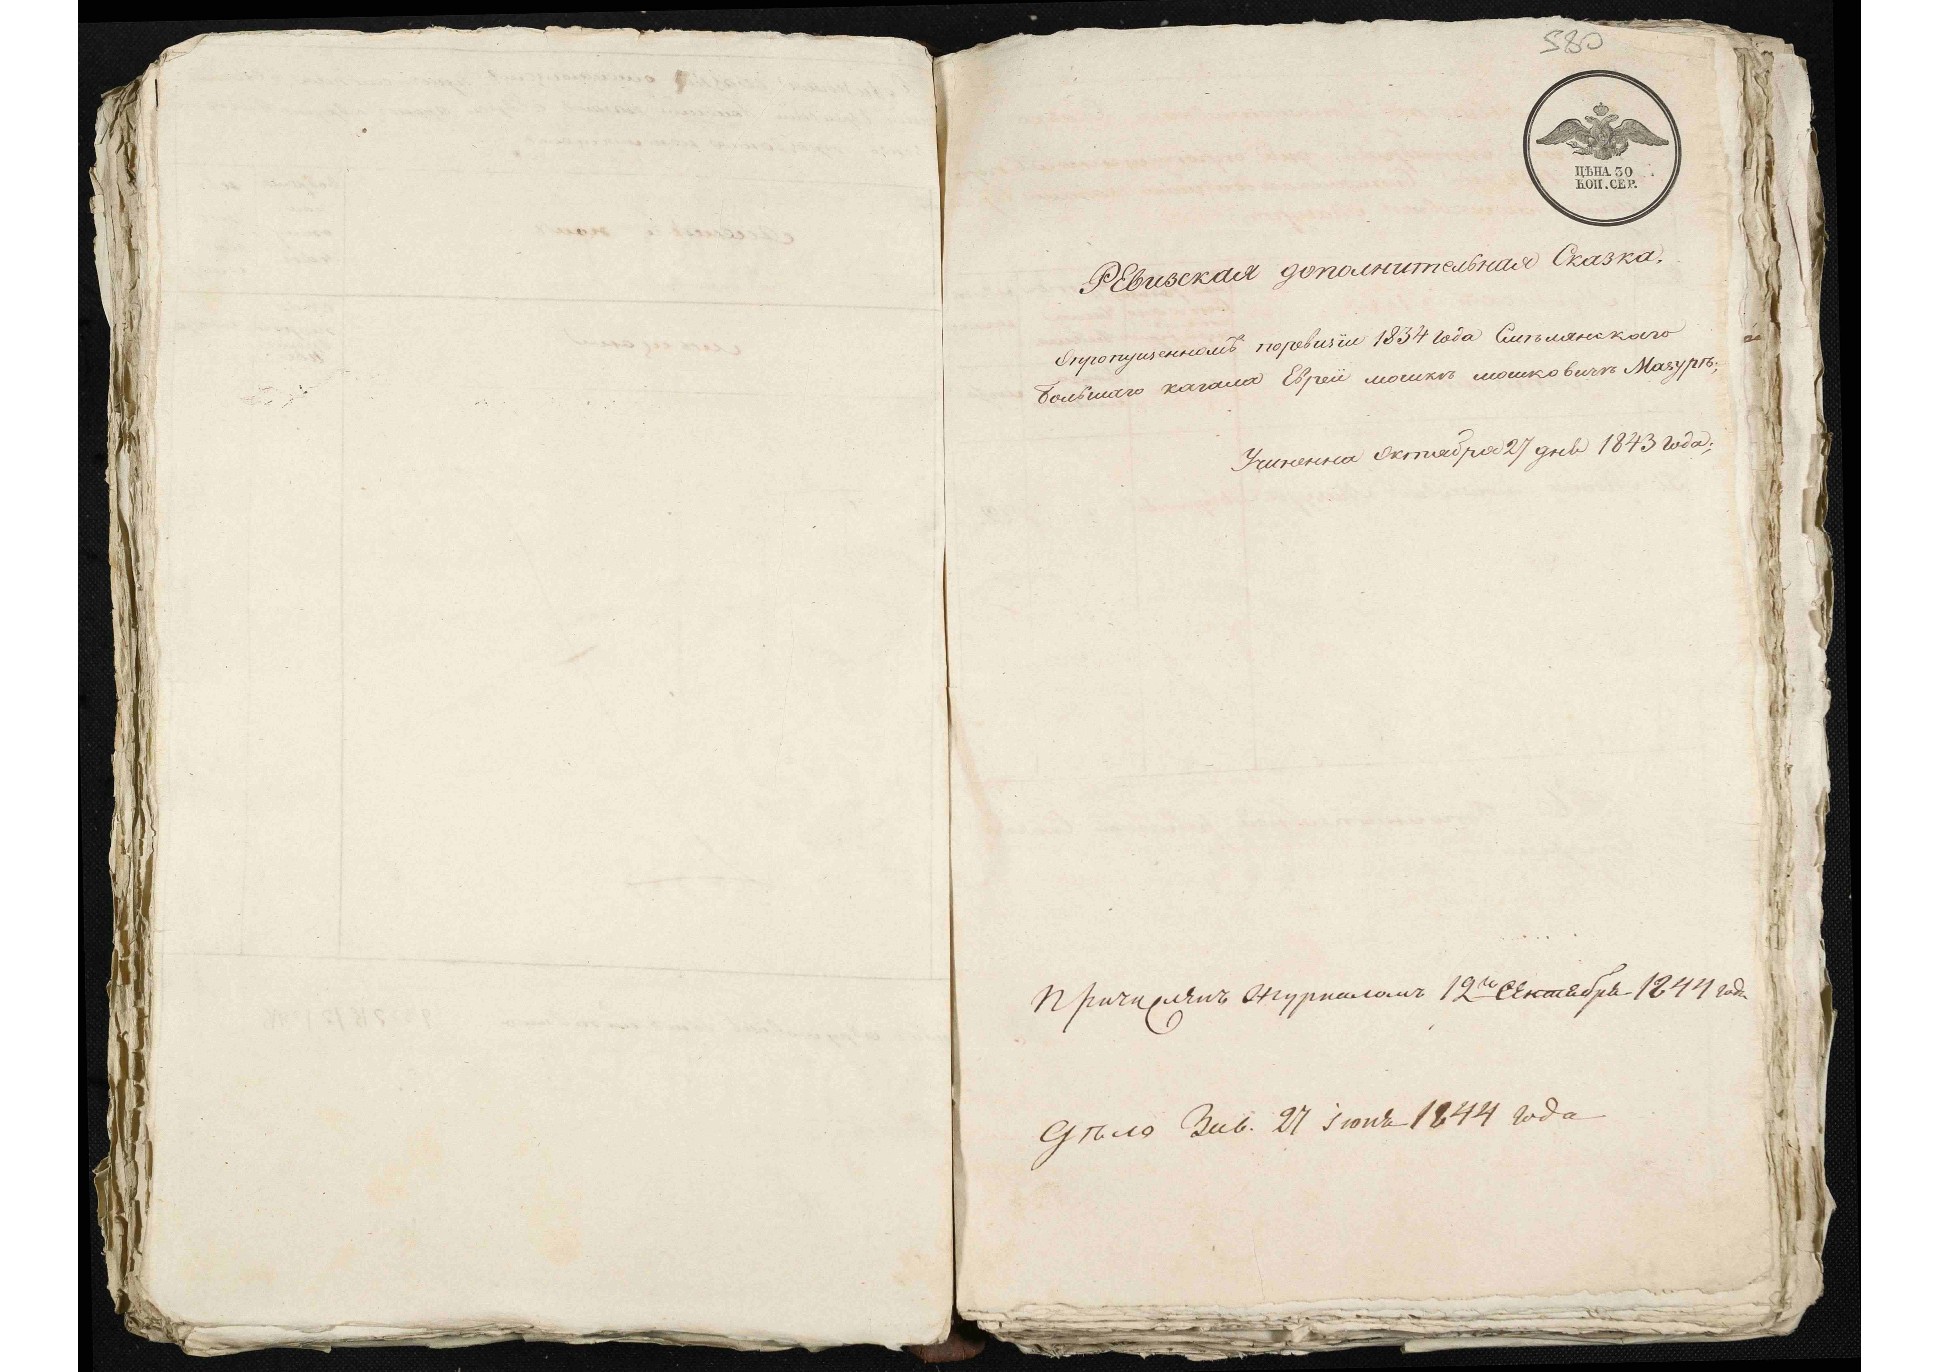 580
ЦѢНА 30
КОП. СЕР.
Ревизская дополнительная Сказка.
Опропущенномъ поревизіи 1834 года Смѣлянскаго
Большаго кагала Еврей мошкѣ мошковичѣ Мазурѣ;
Учиненна Октября 27 дня 1843 года;
Причисленъ Журналомъ 12го Сентября 1844 года
Дѣло Зав. 27 іюня 1844 года